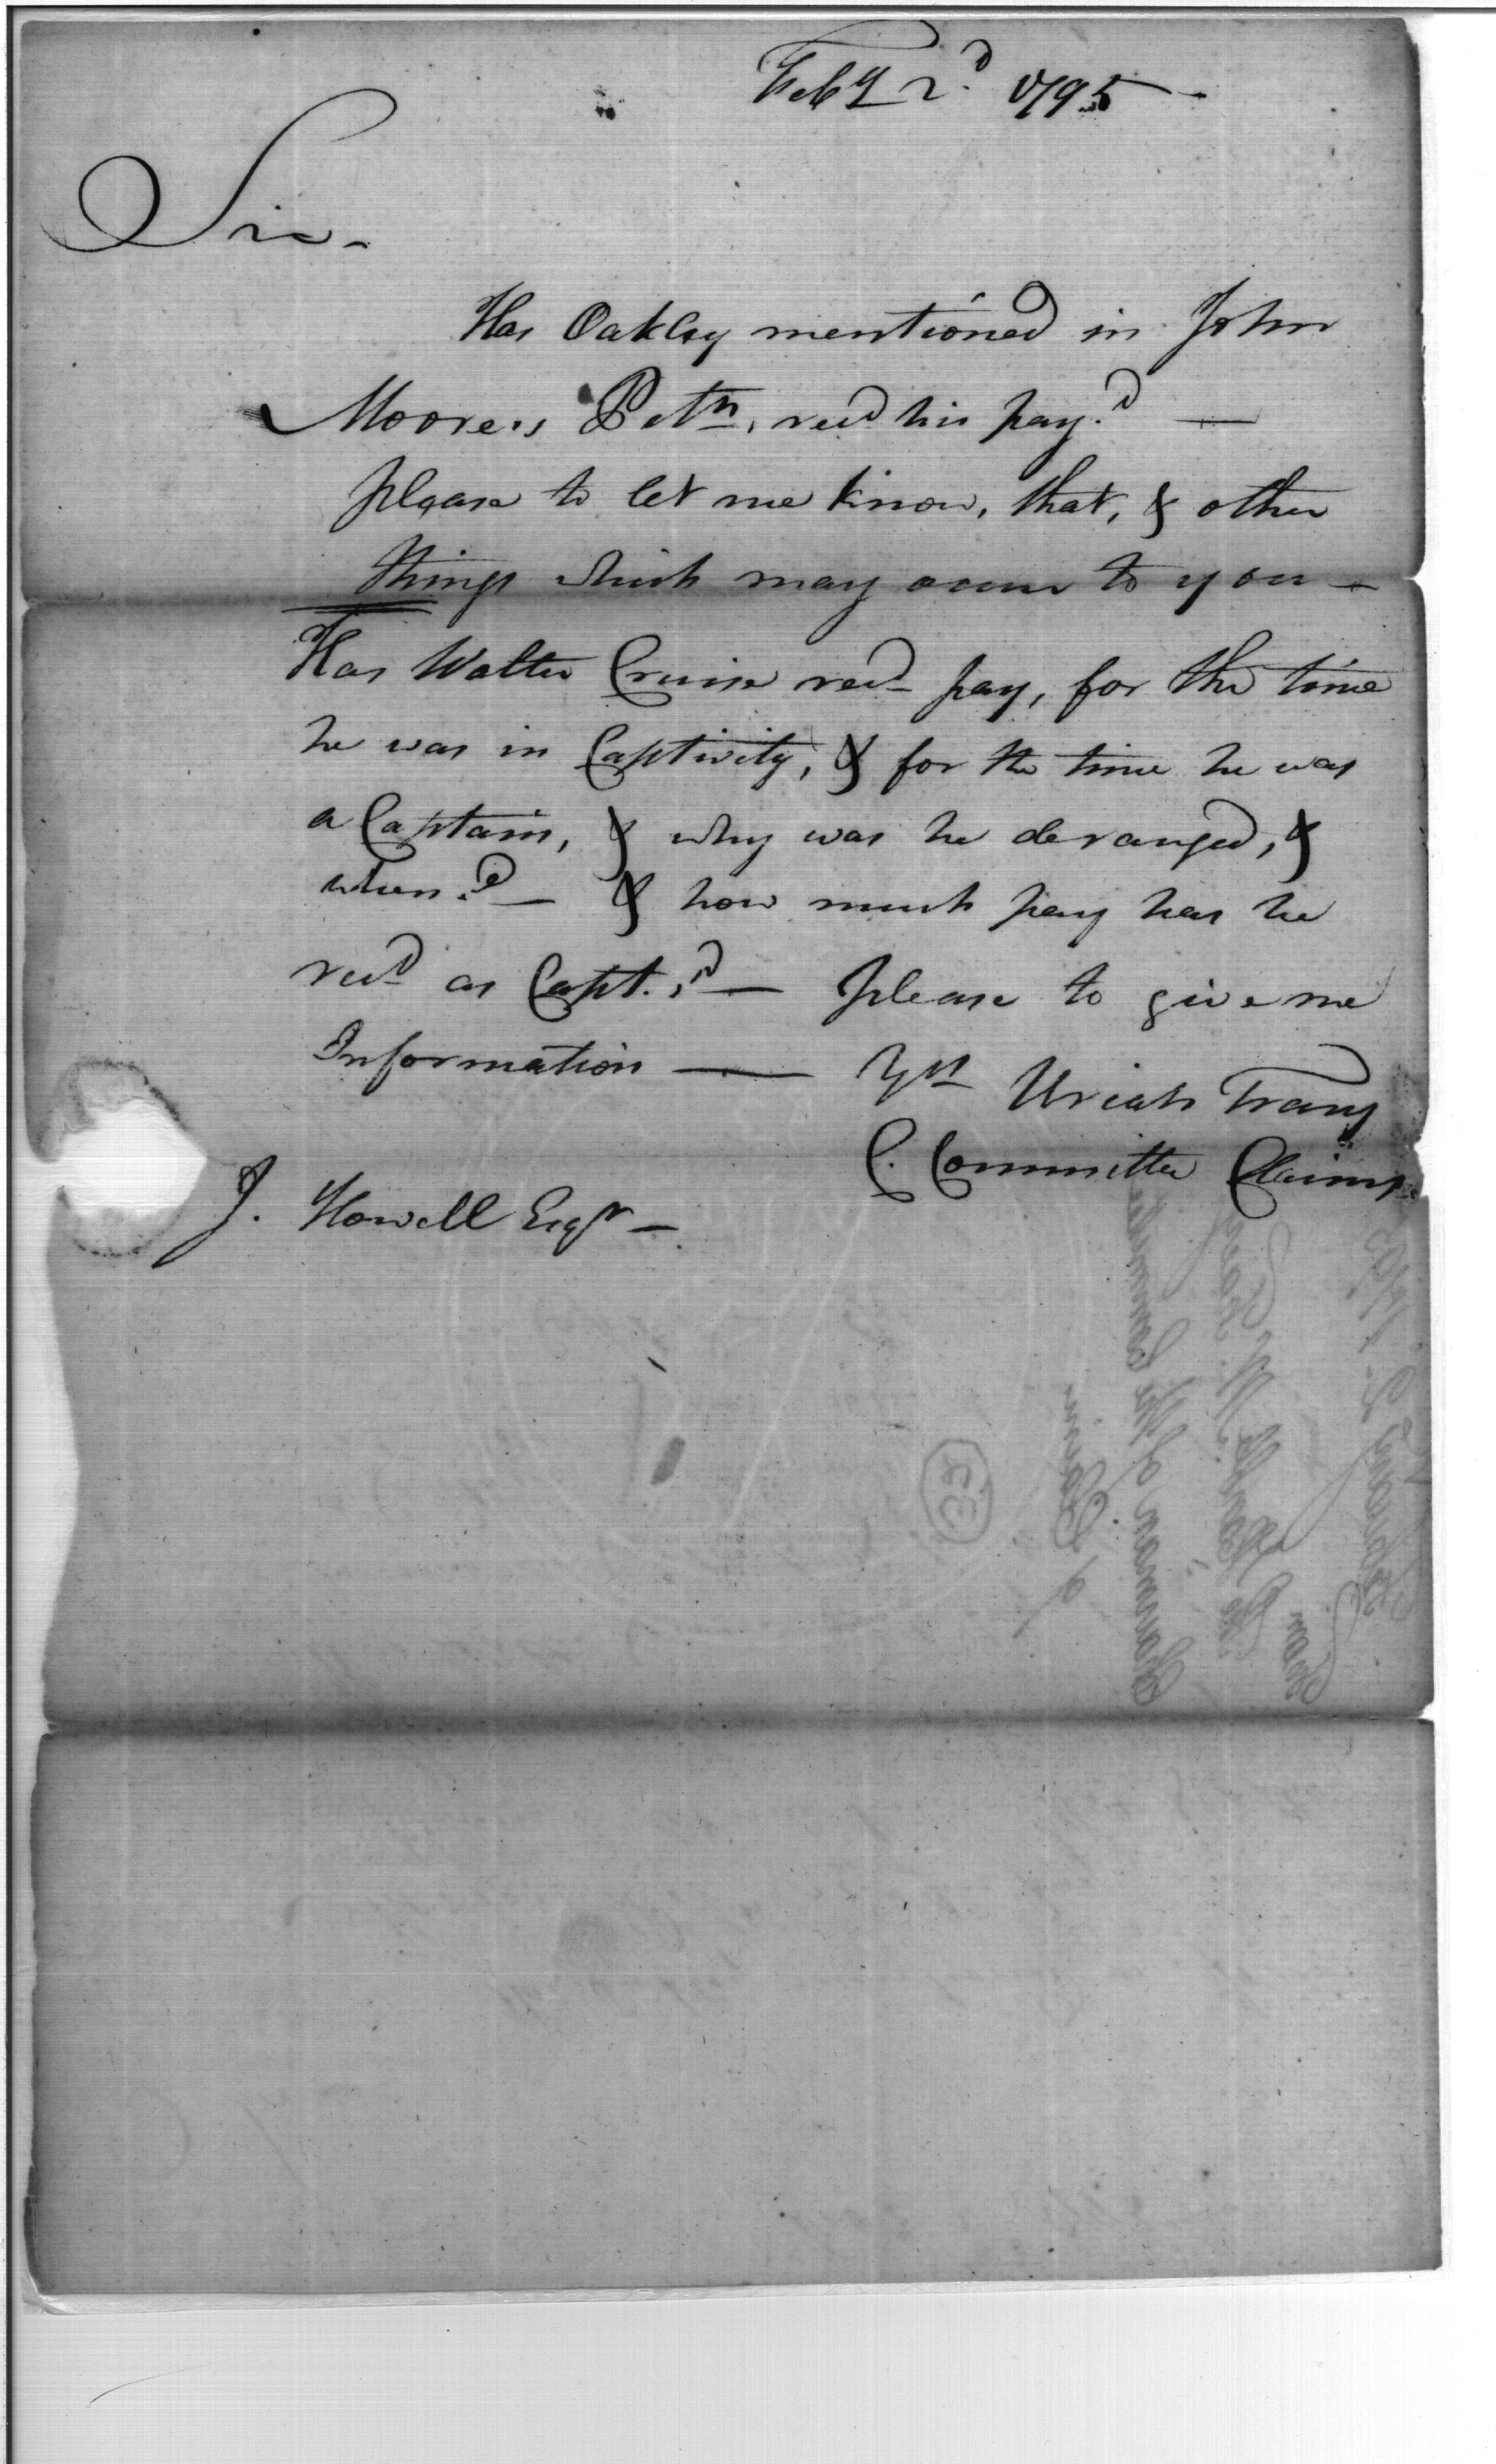 Feby 2d 1795 -
Sir -
Has Oakley mentioned in John
Moore's Petn, recd his pay? —
please to let me know, that, & other
things which may occur to you —
Has Walter Cruise recd pay, for the time
he was in Captivity, & for the time he was
a Captain, & why was he deranged, &
when? — & how much pay has he
recd as Capt.? — please to give me
Information — Yrs Uriah Tracy
C. Committee Claims
J. Howell Esqr —
February 2d 1795
From
The Honble. Mr. Tracy
Chairman of the Committee
of Claims
32